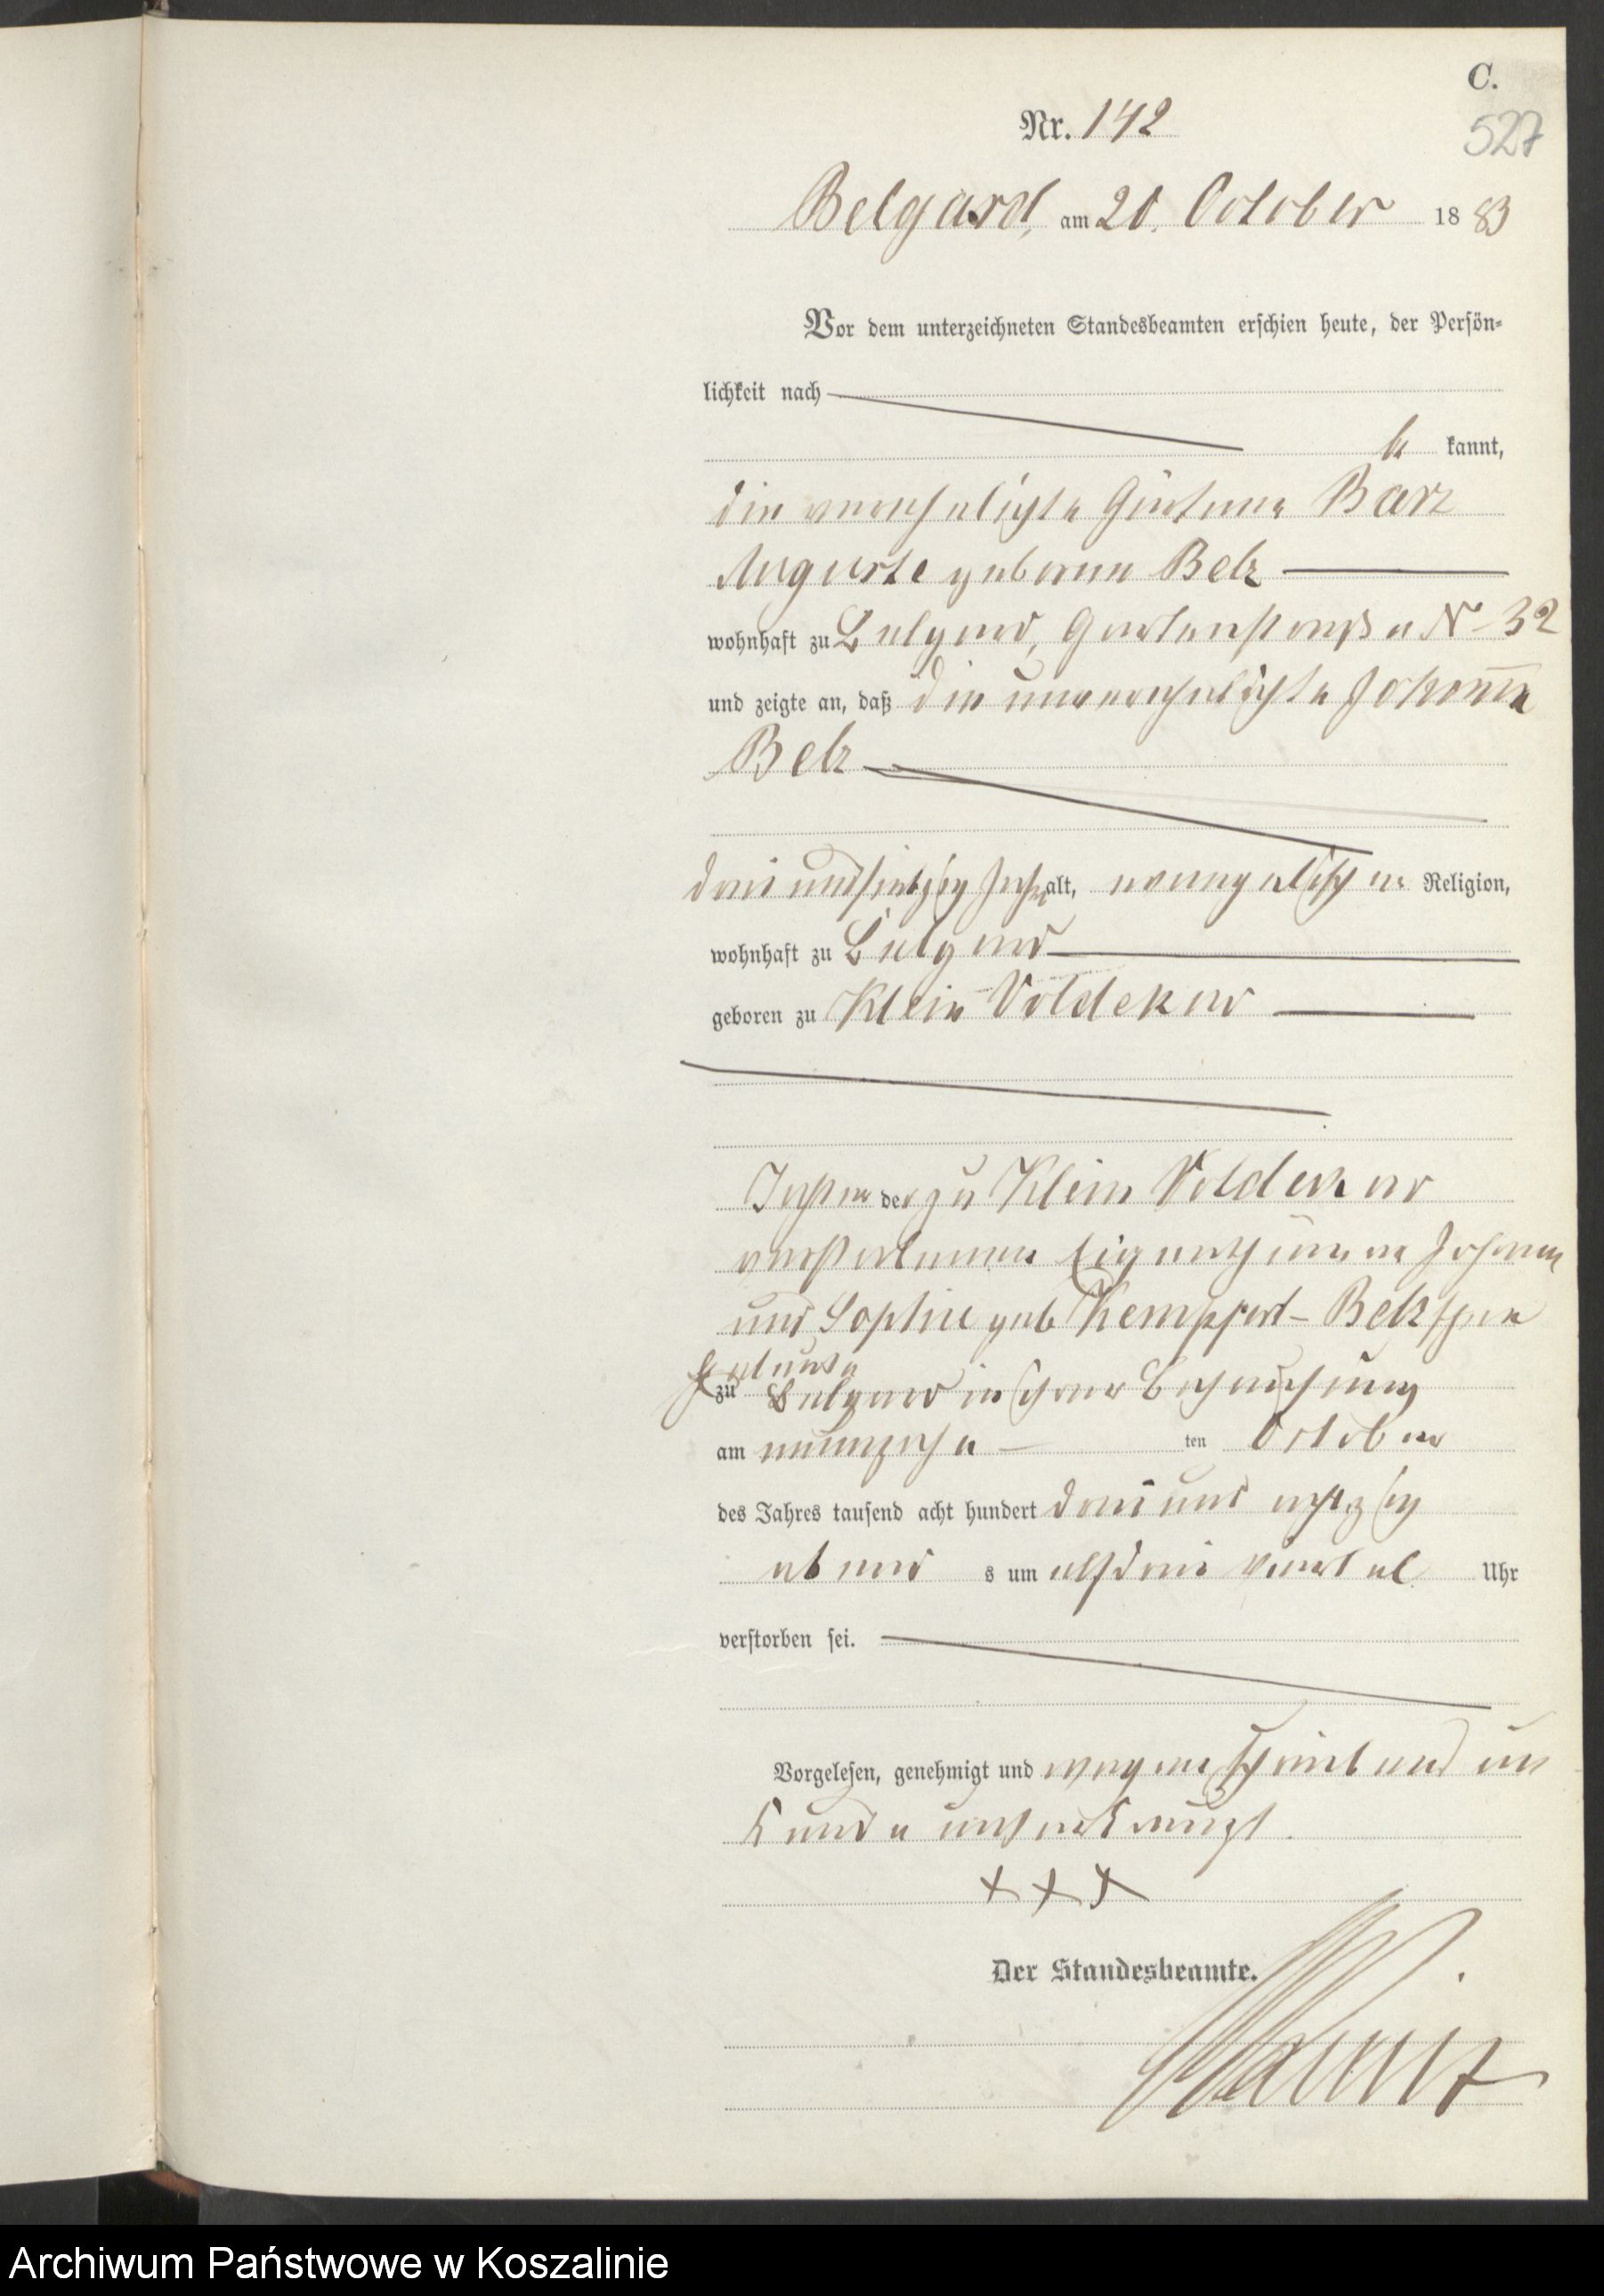 C.
Nr. 142
527
Belgard, am 20. October 1883
Vor dem unterzeichneten Standesbeamten erschien heute, der Persön-
lichkeit nach
be kannt,
die verehelichte Barz
Auguste geborene Belz
wohnhaft zu Belgard, Gartenstraße No 32
und zeigte an, daß die unverehelichte Johanne
Belz
drei und siebzig Jahre alt, evangelischer Religion,
wohnhaft zu Belgard
geboren zu Klein Voldekow
Tochter der zu Klein Voldekow
verstorbenen Eigenthümer Johann
und Sophie geb Belzschen
Eheleute
zu Belgard in ihrer Behausung
am neunzehn ten October
des Jahres tausend acht hundert drei und achtzig
abend s um elf drei viertel Uhr
verstorben sei.
Vorgelesen, genehmigt und wegen Schreibens un
kunde unterkreuzt.
+++
Der Standesbeamte.
Archiwum Państwowe w Koszalinie